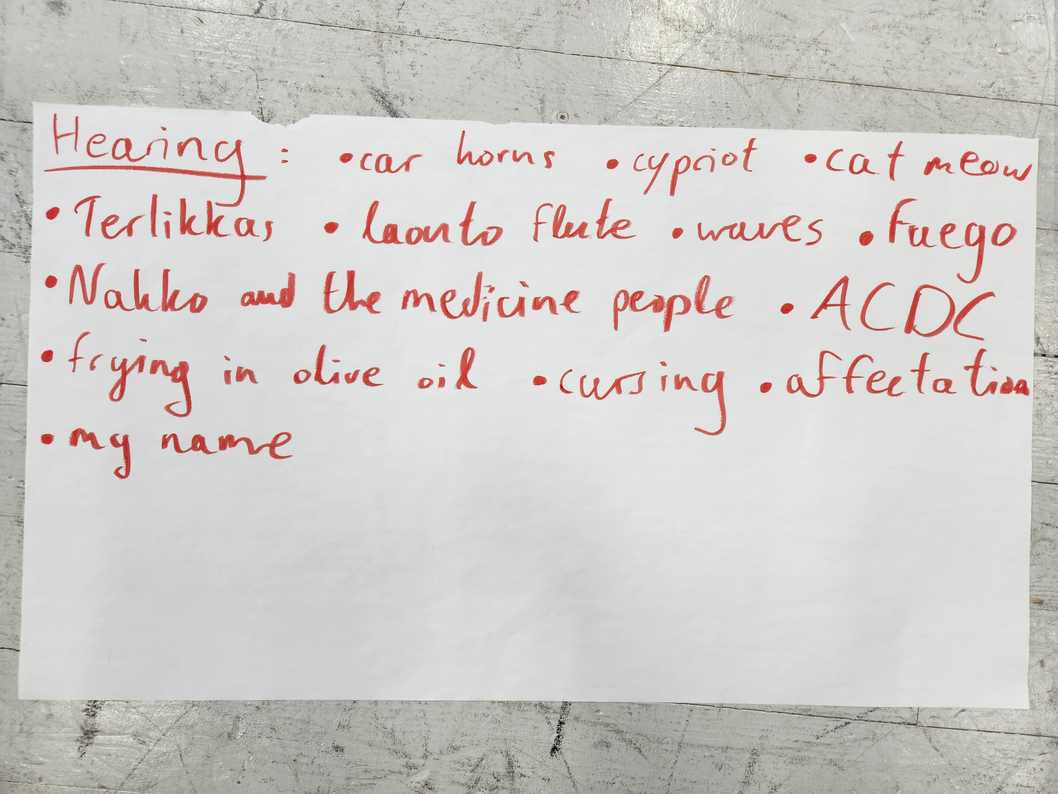 Hearing : • car horns • cypriot • cat meow
• Terlikkas • laouto flute • waves • Fuego
• Nahko and the medicine people • ACDC
• frying in olive oil • cursing • affectation
• my name